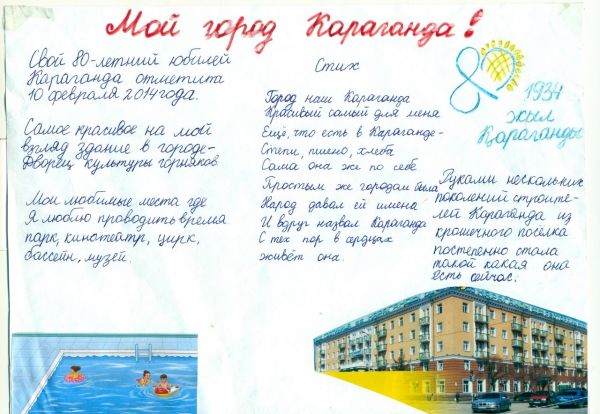 Мой город Караганда!
Свой 80-летний юбилей
Караганда отметила
10 февраля 2014 года.
Самое красивое на мой
взгляд здание в городе-
Дворец культуры горняков.
Мои любимые места где
Я люблю проводить время
парк, кинотеатр, цирк,
бассейн, музей.
Стих
Город наш Караганда
Красивый самый для меня
Ещё, что есть в Караганде-
Степи, пшено, хлеба
Сама она же по себе
Простым же городам была
Народ давал ей имена
И вдруг назвал Караганда
С тех пор в сердцах
живёт она.
80
1934
жыл
Қарағанды
Руками нескольких
поколений строите-
лей Караганда из
крошечного посёлка
постепенно стала
такой какая она
есть сейчас.